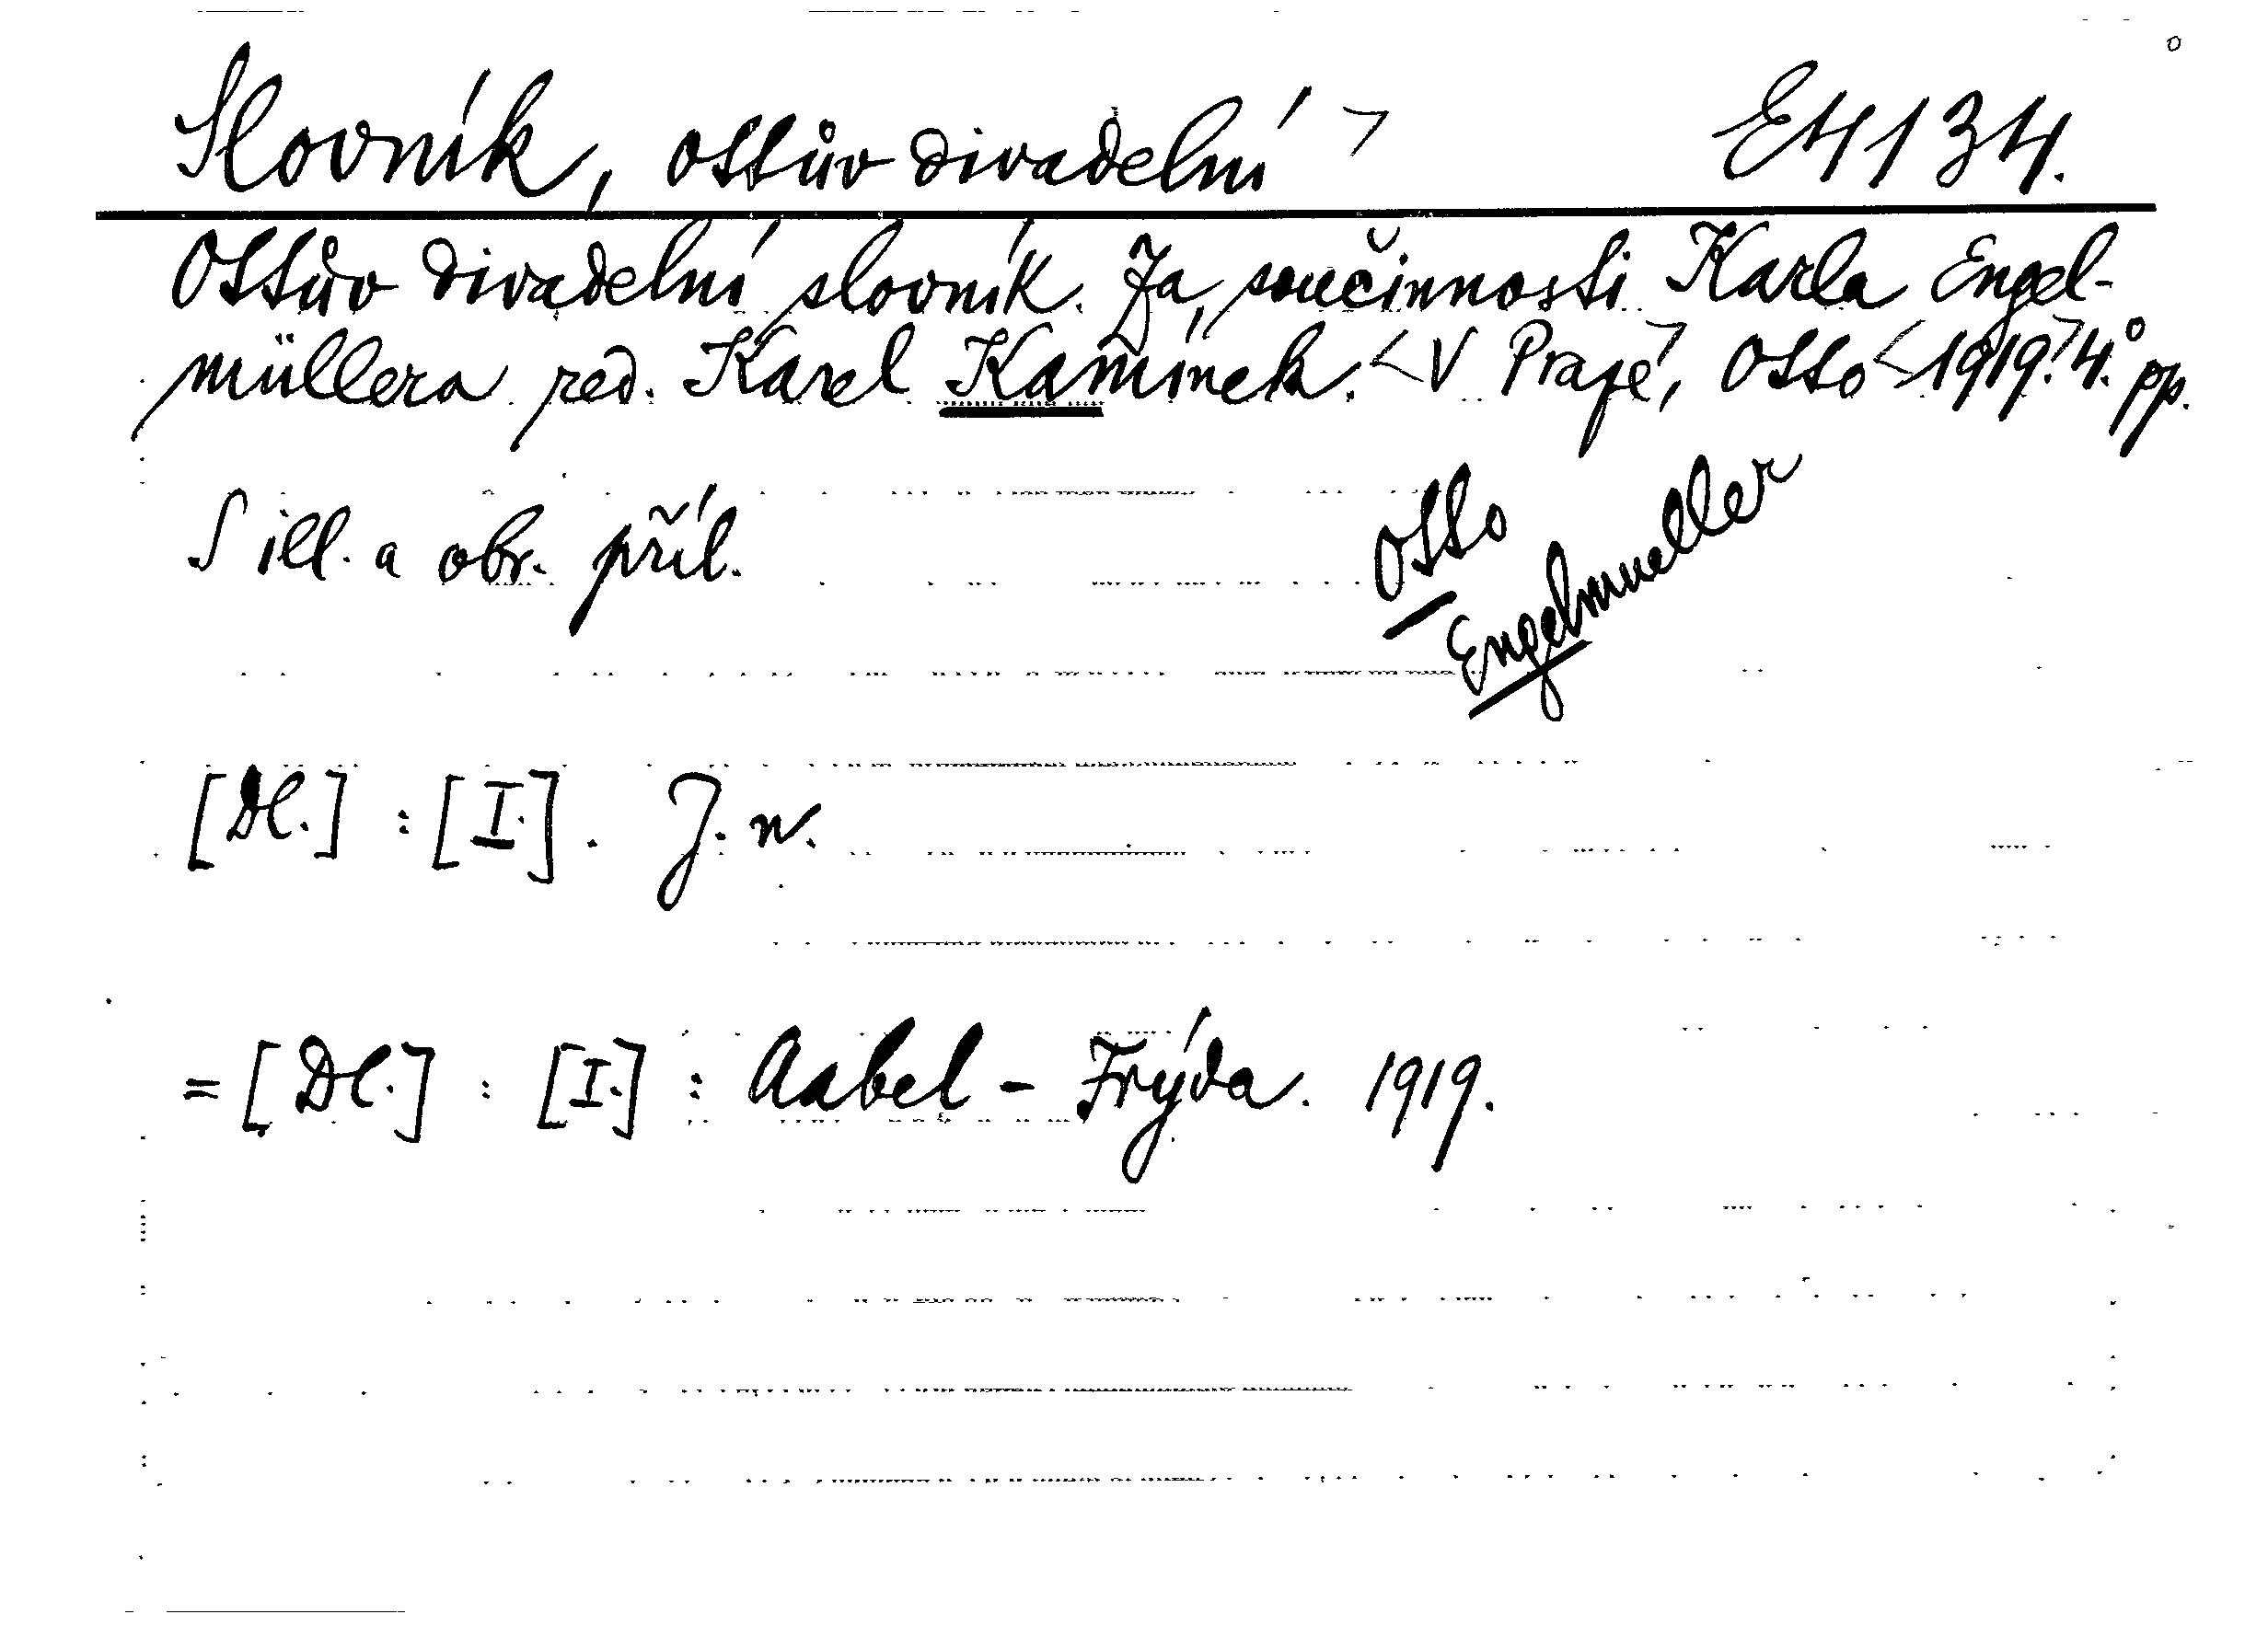 Slovník, Ottův divadelní > E4134.
Ottův divadelní slovník. Za součinnosti Karla Engel-
müllera red. Karel Kamínek. <V Praze>, Otto <1919.> 4.° pp.
S ill. a obr. příl.
Otto
Engelmueller
[Dl.] : [I.]. J. n.
= [Dl.] : [I.] : Aabel - Frýda. 1919.